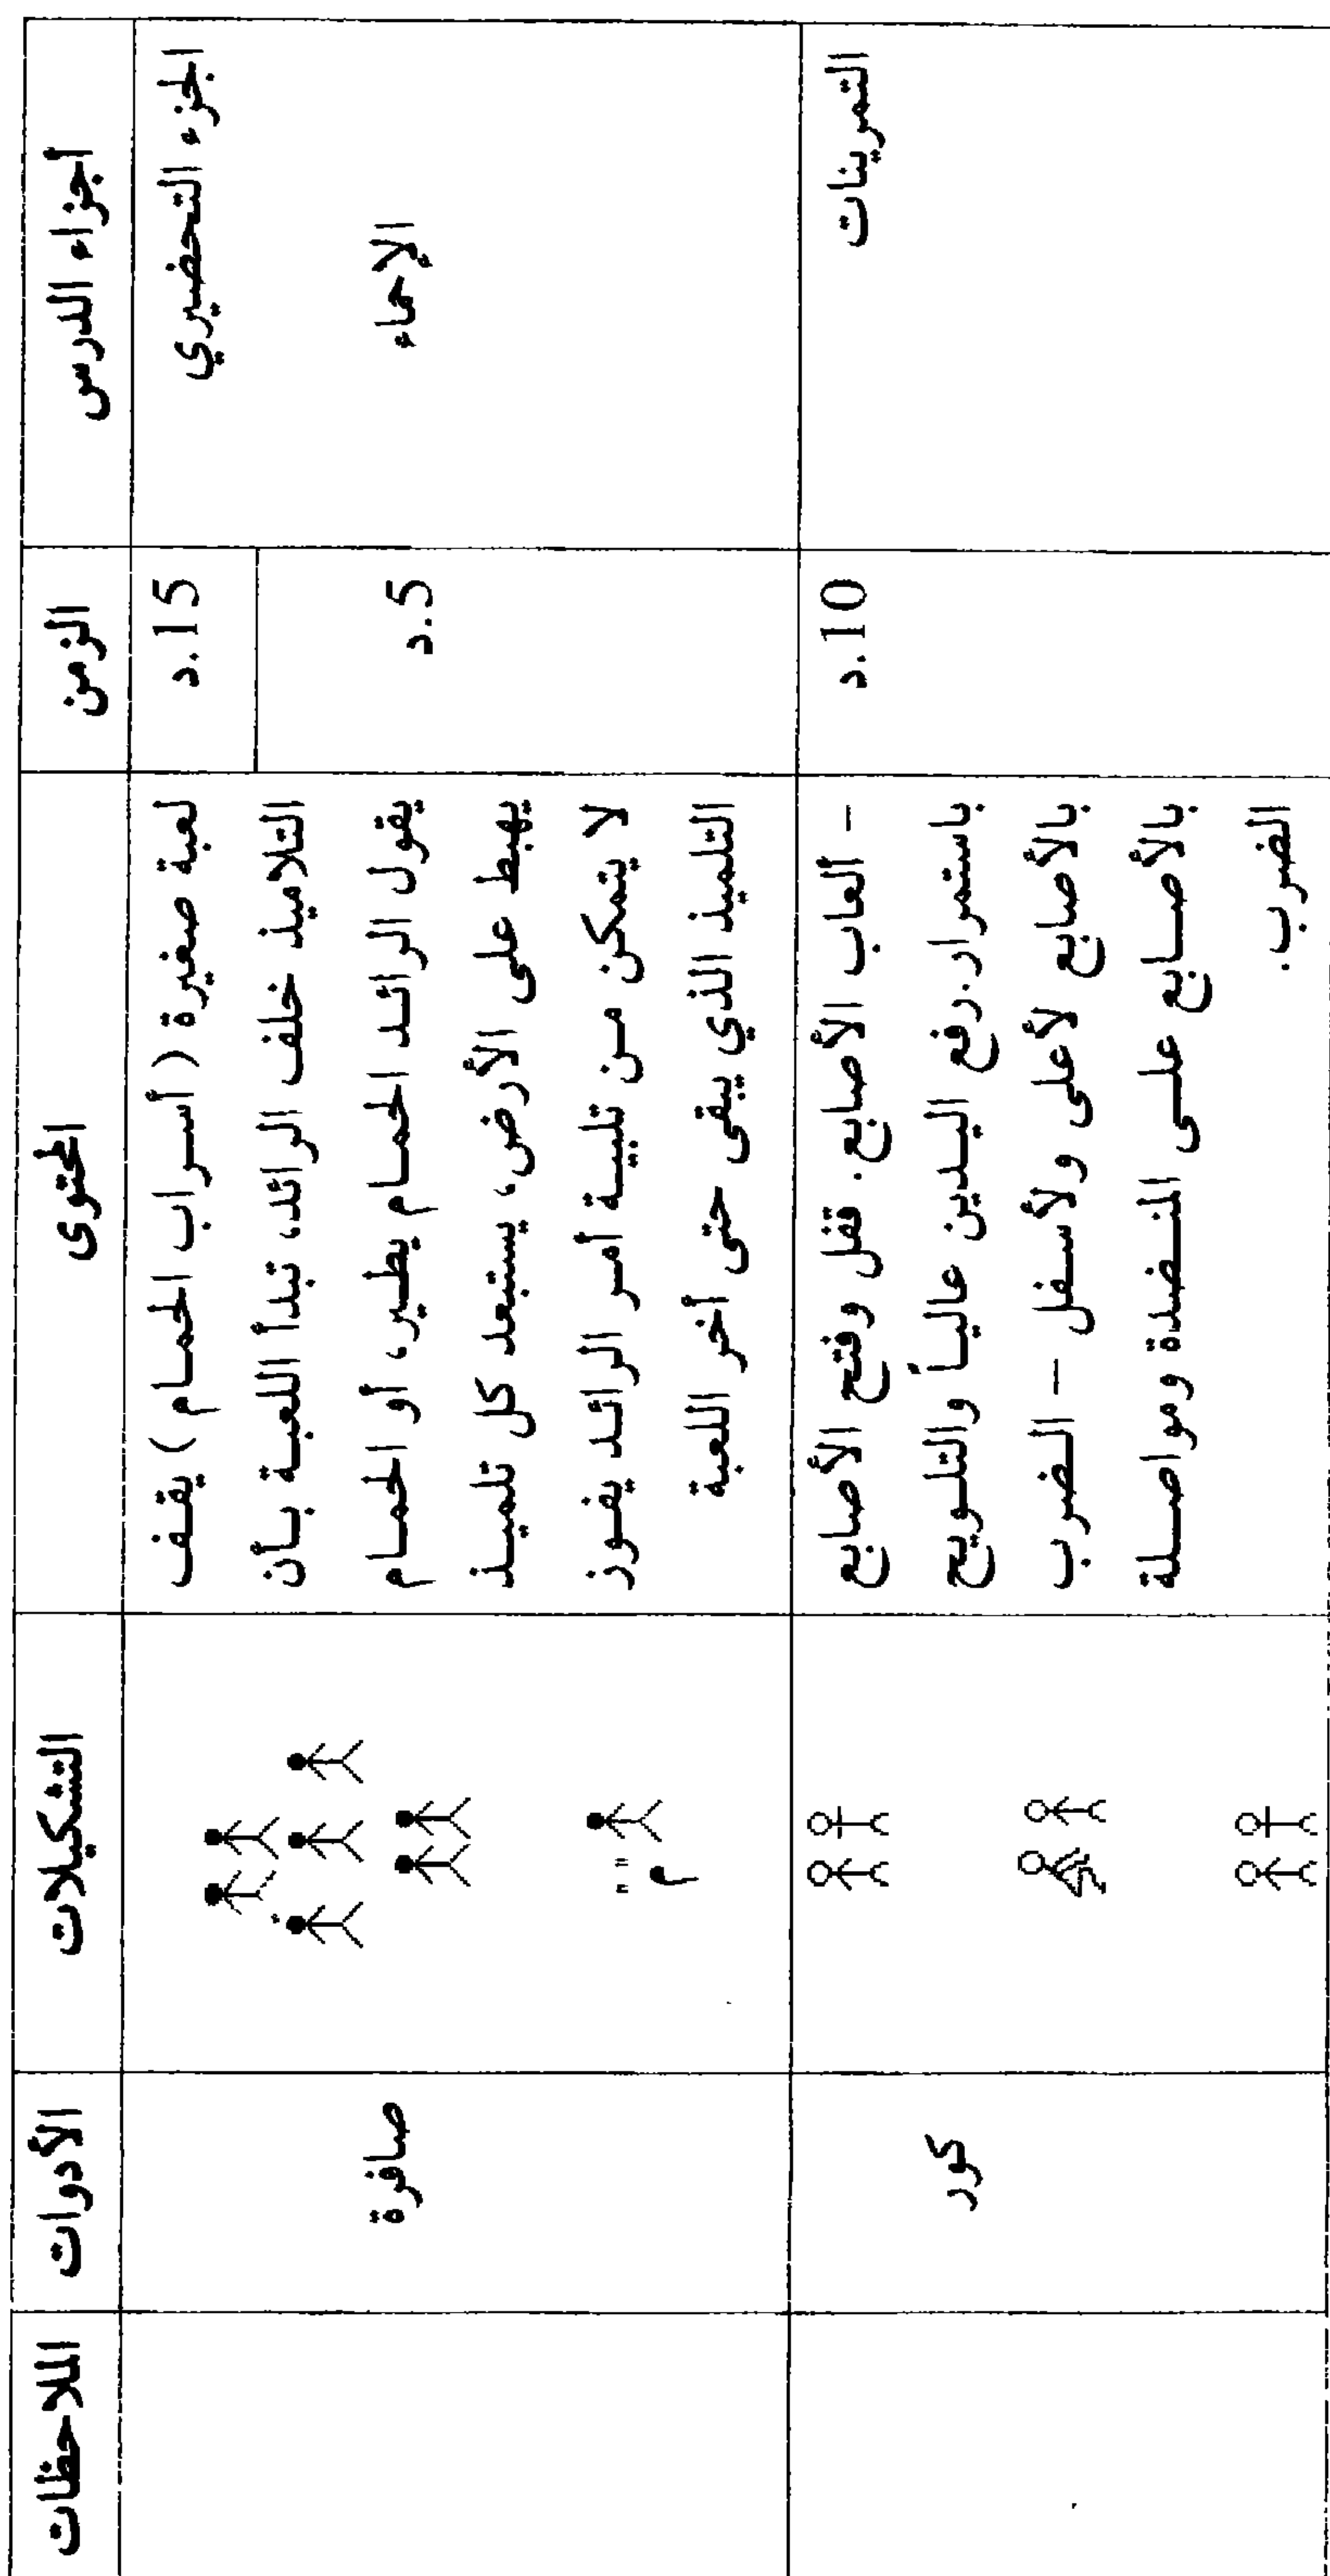 أجزاء الدرس
الزمن
المحتوى
التشكيلات
الأدوات
الملاحظات
الجزء التحضيري
الإحماء
15.د
5.د
لعبة صغيرة ( أسراب الحمام ) يقف
التلاميذ خلف الرائد، تبدأ اللعبة بأن
يقول الرائد الحمام يطير، أو الحمام
يهبط على الأرض، يستبعد كل تلميذ
لا يتمكن من تلبية أمر الرائد يفوز
التلميذ الذي يبقى حتى أخر اللعبة
"م"
صافرة
التمرينات
10.د
– العاب الأصابع. قفل وفتح الأصابع
باستمرار.رفع اليدين عالياً والتلويح
بالأصابع لأعلى ولأسفل – الضرب
بالأصابع على المنضدة ومواصلة
الضرب.
كور